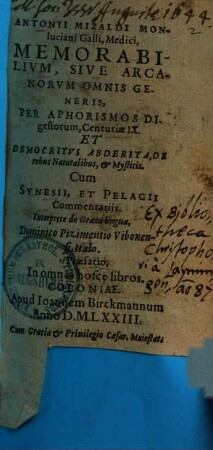 1644
ANTONII MIZALDI MON-
luciani Galli, Medici,
MEMORABI-
LIVM, SIVE ARCA-
NORVM OMNIS GE-
NERIS,
PER APHORISMOS DI-
gestorum, Centuriæ IX.
ET
DEMOCRITVS ABDERITA, DE
rebus Naturalibus, & Mysticis.
Cum
SYNESII, ET PELAGII
Commentariis.
Interprete de Græca lingua,
Dominico Pizimentio Vibonen-
si, Italo.
Præfatio,
IX
In omnes hosce libros.
COLONIAE.
Apud Ioannem Birckmannum
Anno D.M.LXXIII.
Cum Gratia & Priuilegio Cæsar. Maiestatis
Ex biblio,
theca
Christopho